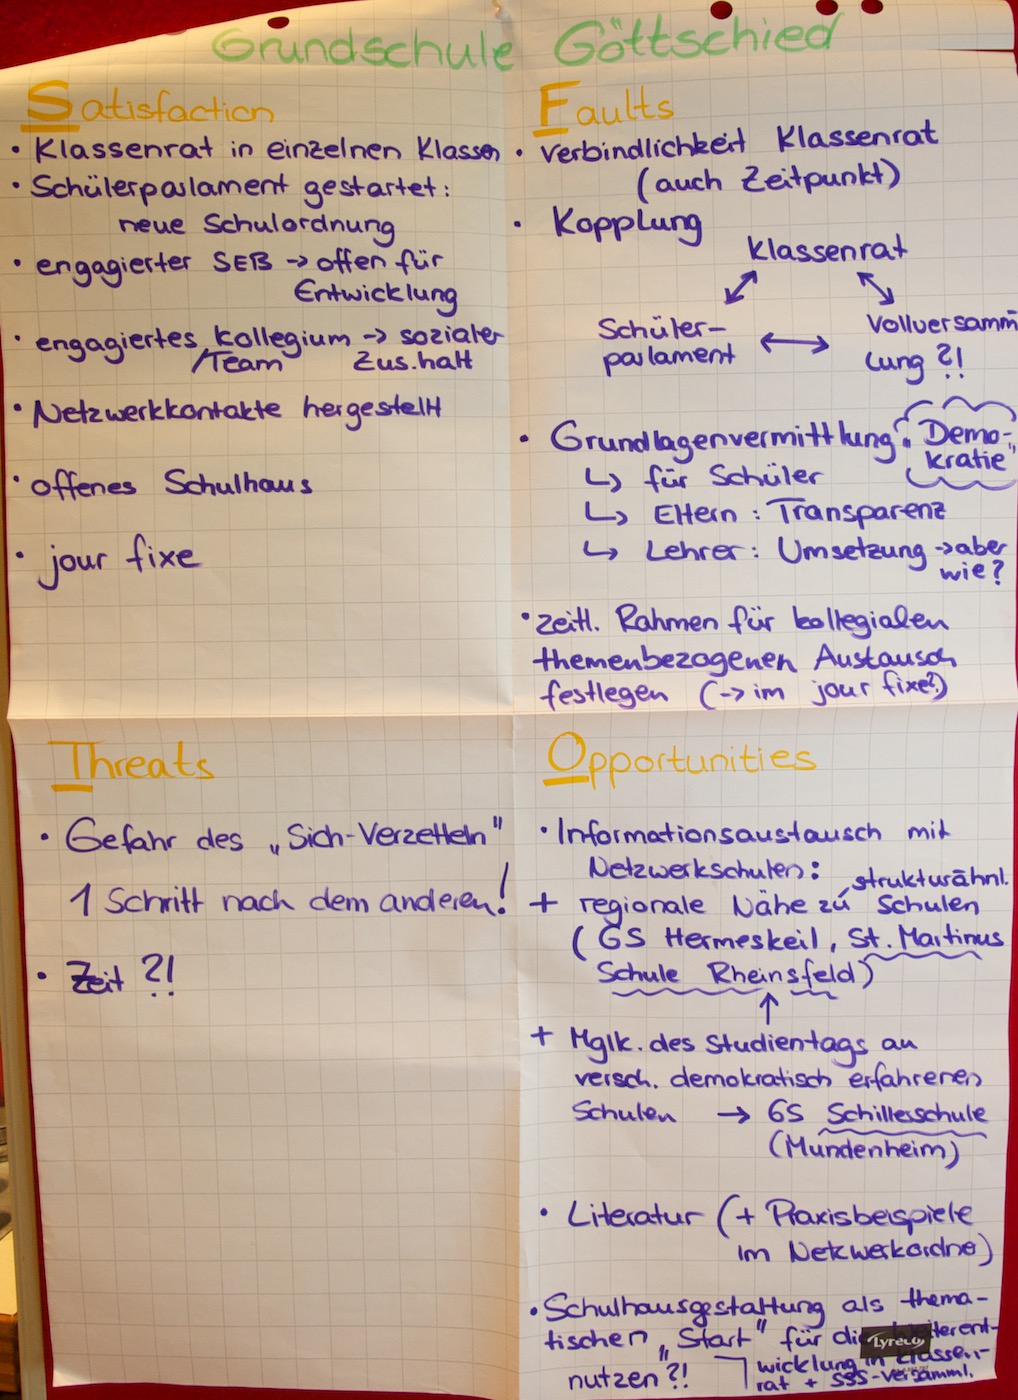 Grundschule Göttschied
Satisfaction
• Klassenrat in einzelnen Klassen
• Schülerparlament gestartet:
neue Schulordnung
• engagierter SEB -> offen für
Entwicklung
• engagiertes Kollegium -> sozialer
/Team Zus.halt
• Netzwerkkontakte hergestellt
• offenes Schulhaus
• jour fixe
Faults
• Verbindlichkeit Klassenrat
(auch Zeitpunkt)
• Kopplung
Klassenrat
Schüler-
parlament
Vollversamm
lung ?!
• Grundlagenvermittlung: "Demo-
kratie"
↳ für Schüler
↳ Eltern: Transparenz
↳ Lehrer: Umsetzung -> aber
wie?
• zeitl. Rahmen für kollegialen
themenbezogenen Austausch
festlegen (-> im jour fixe?)
Threats
• Gefahr des „Sich-Verzetteln"
1 Schritt nach dem anderen!
• Zeit ?!
Opportunities
• Informationsaustausch mit
Netzwerkschulen:
strukturähnl.
+ regionale Nähe zu Schulen
(GS Hermeskeil, St. Martinus
Schule Rheinsfeld)
↑
+ Mglk. des Studientags an
versch. demokratisch erfahrenen
Schulen -> GS Schillerschule
(Mundenheim)
• Literatur (+ Praxisbeispiele
im Netzwerkordne)
• Schulhausgestaltung als thema-
tischen „Start" für die
nutzen?!
wicklung in Klassen-
rat + SBS-Versamml.
Lyreco